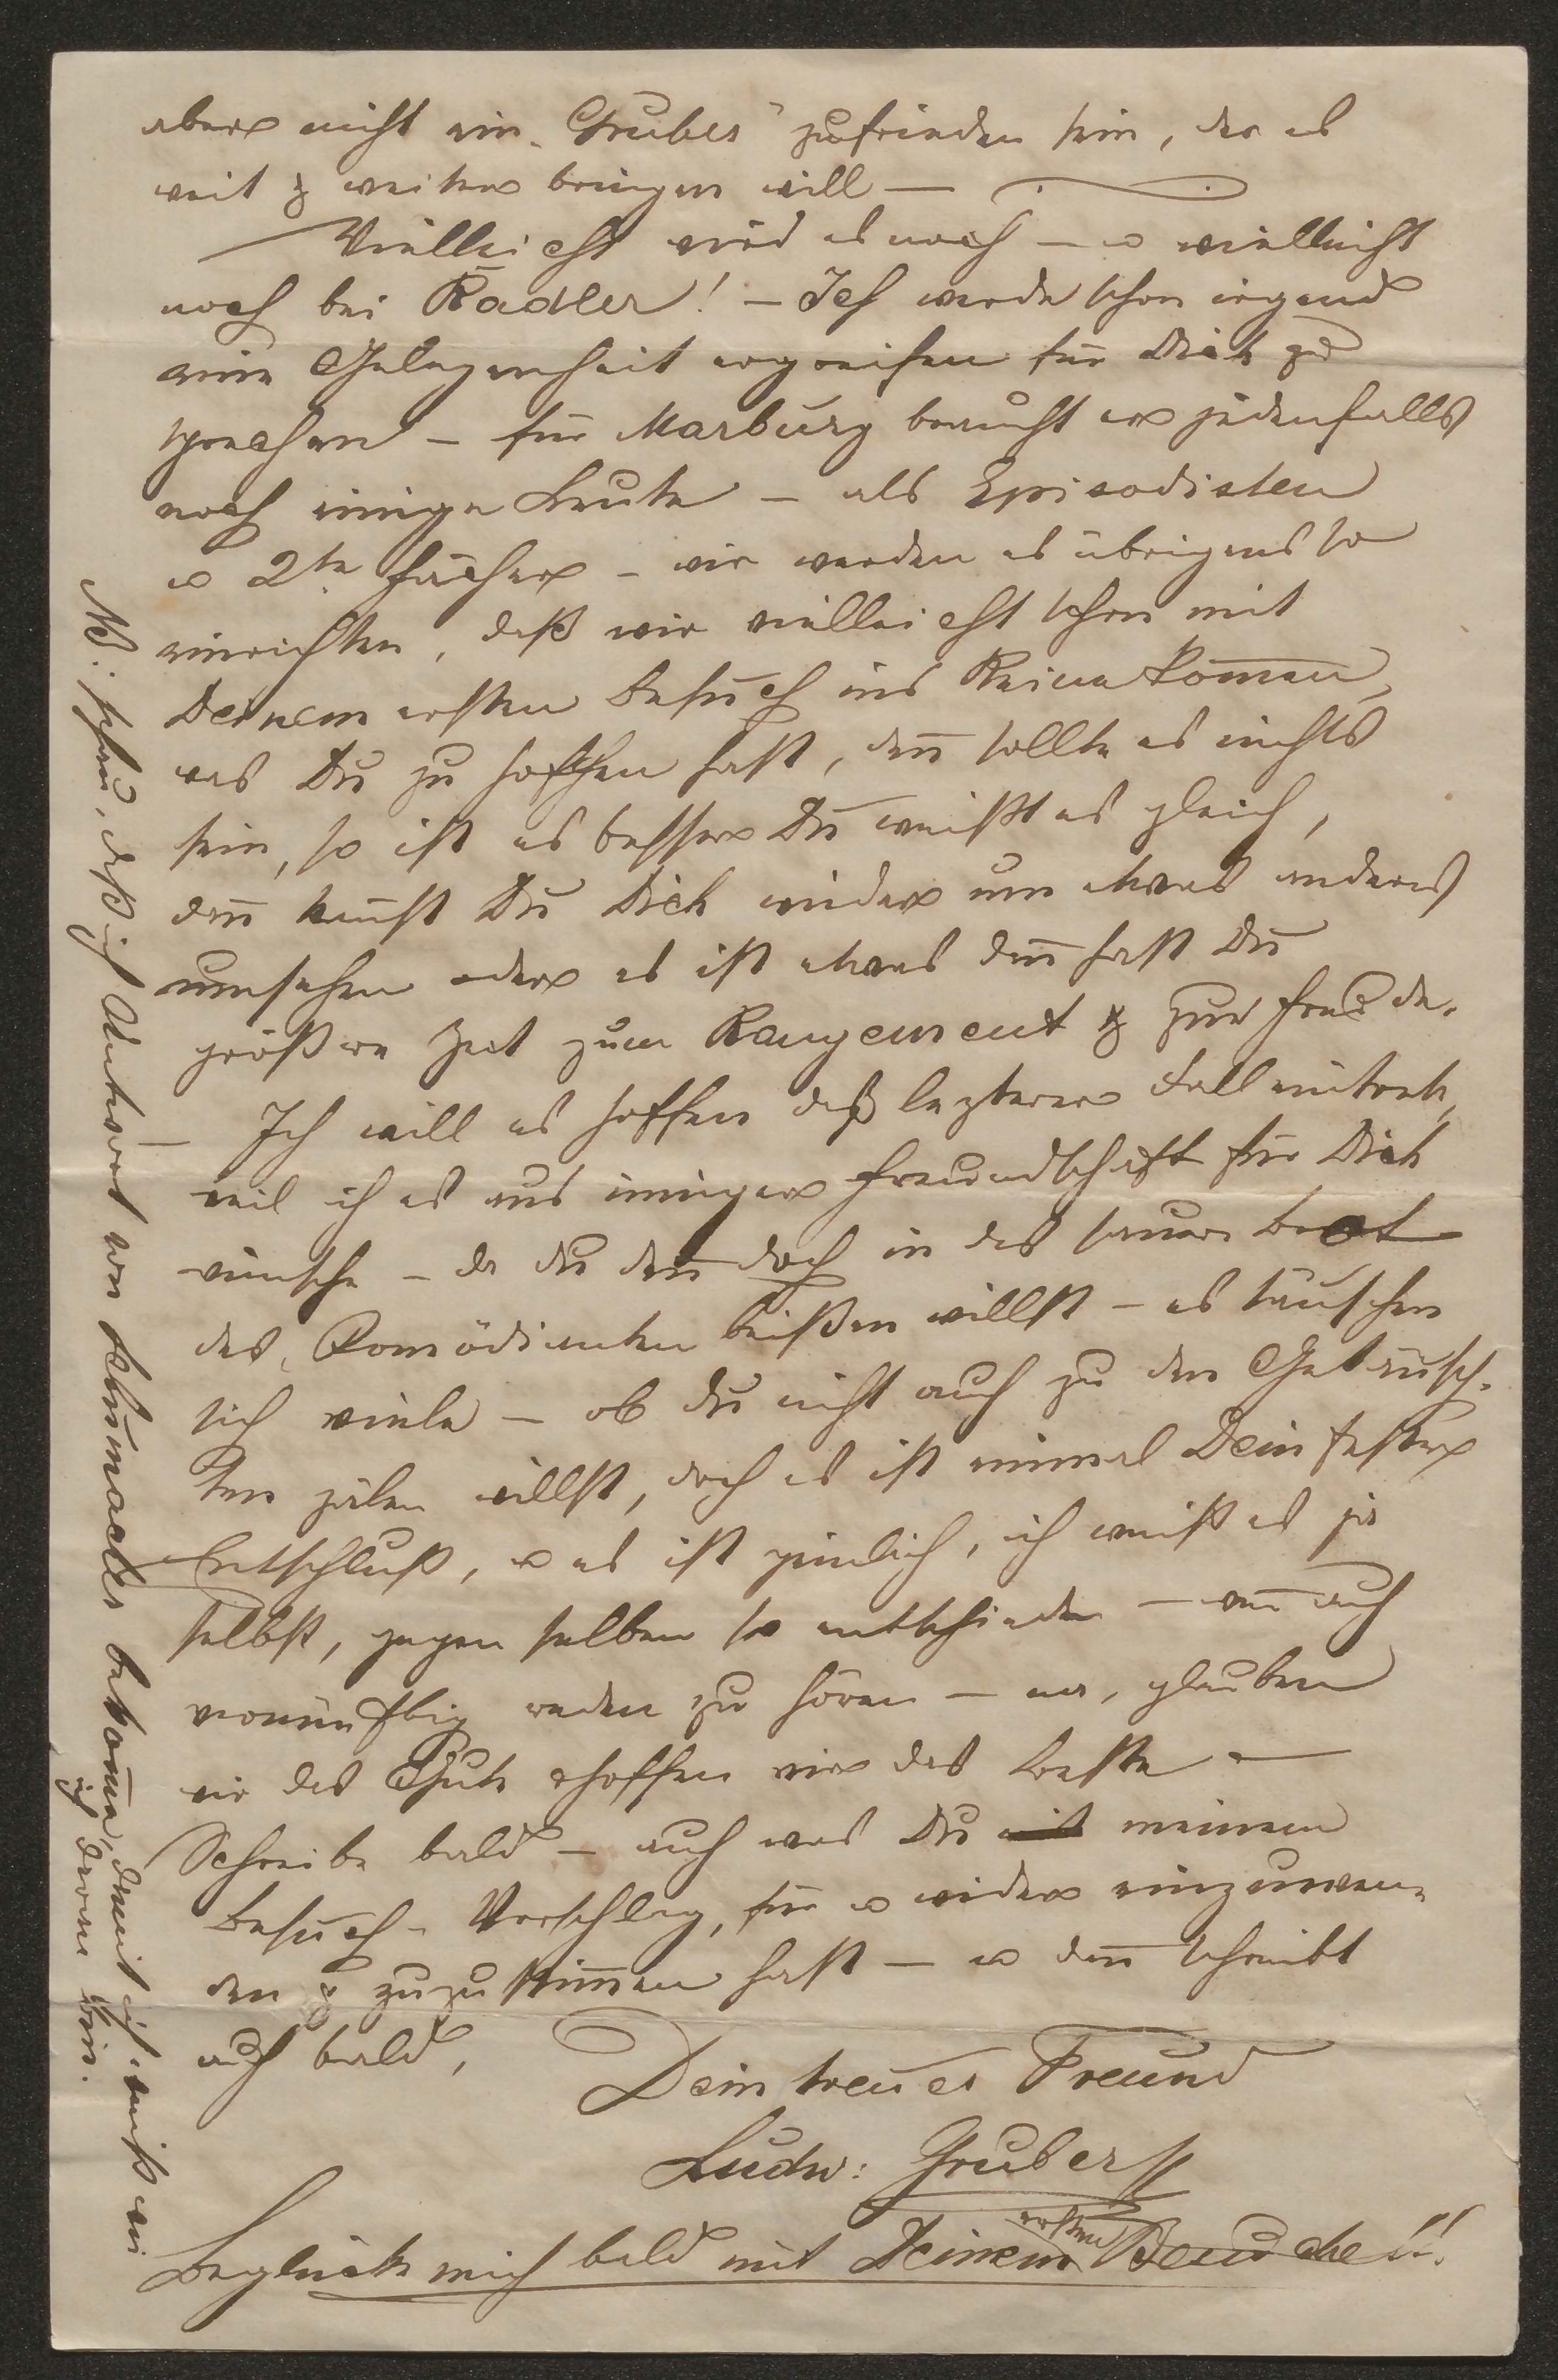 aber nicht ein „Gruber" zufrieden sein, der es
weit & weiter bringen will —
Vielleicht wird es noch — u vielleicht
noch bei Radler! — Ich werde schon irgend
eine Gelegenheit ergreifen für Dich zu
sprechen — für Marburg braucht er jedenfalls
noch einige Leute — als Episodisten
u 2te Fächer — wir werden es übrigens so
einrichten, daß wir vielleicht schon mit
Deinem ersten Besuch ins Reine kom̄en,
was Du zu hoffen hast, den̄ sollte es nichts
sein, so ist es besser Du weißt es gleich,
dan̄ kan̄st Du Dich wieder um etwas anderes
umsehen oder es ist etwas dan̄ hast Du
größere Zeit zum Rangement & zur Freude.
— Ich will es hoffen daß lezterer Fall eintrete,
weil ich es aus inniger Freundschaft für Dich
wünsche — da du den̄ doch in das saure Brot
des Comödianten beißen willst — es täuschen
sich viele — ob du nicht auch zu den Getäusch-
ten zälen willst, doch es ist einmal Dein fester
Entschluß, u es ist peinlich, ich weiß es ja
selbst, gegen selben so entschieden — wen̄ auch
vernünftig reden zu hören — na, glauben
wir das Gute u hoffen wir das Beste —
Schreibe bald — auch was Du meinem
Besuch-Vorschlag, für u wider einzuwen-
den & zuzustim̄en hast — u dan̄ schreibt
auch bald,
Dein treuer Freund
Ludw: Gruber
Beglücke mich bald mit Deinem ersten Besuche!!
NB: schau, daß ich Antwort von bekom̄e, damit ich weiß wie
ich daran bin.